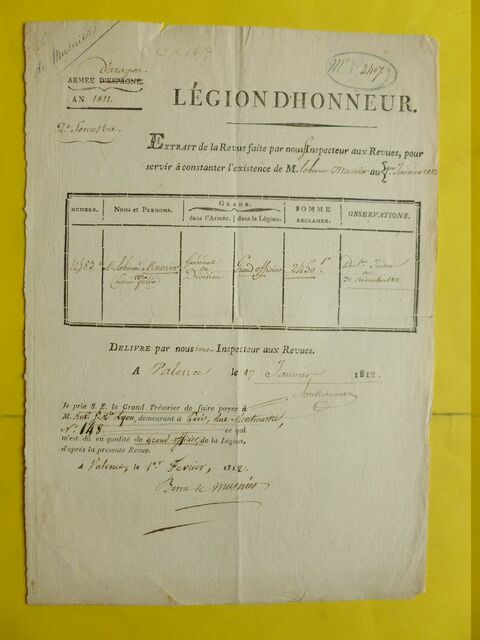 de Musnier
d'aragon
ARMÉE D'ESPAGNE.
AN 1811.
2e Semestre.
M 2407
LÉGION D'HONNEUR.
EXTRAIT de la Revue faite par nous Inspecteur aux Revues, pour
servir à constanter l'existence de M. le baron Musnier au 1er Janvier 1812
NUMERO. NOMS ET PRENOMS. GRADE, dans l'Armée. dans la Légion. SOMME RECLAMÉE. OBSERVATIONS.
M. le baron Musnier Général de Division Grand officier 2450 Du 1er
au
31 décembre 1811
DELIVRÉ par nous sous-Inspecteur aux Revues.
A Valence le 17 Janvier 1812.
Je prie S. E. le Grand Trésorier de faire payer à
M. Ant. Lyon, demeurant à Paris, rue Montmartre
N.o 148 ce qui
m'est dû en qualité de Grand-officier de la Légion,
d'après la présente Revue.
A Valence, le 1er Fevrier, 1812.
Baron de Musnier